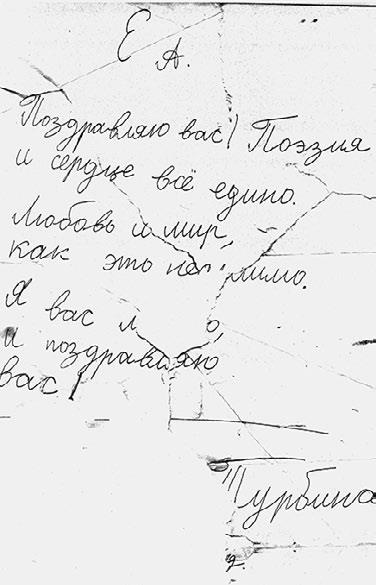 Е А.
Поздравляю вас! Поэзия
и сердце всё едино.
Любовь и мир,
как это
Я вас
и поздравляю
вас!
Турбина